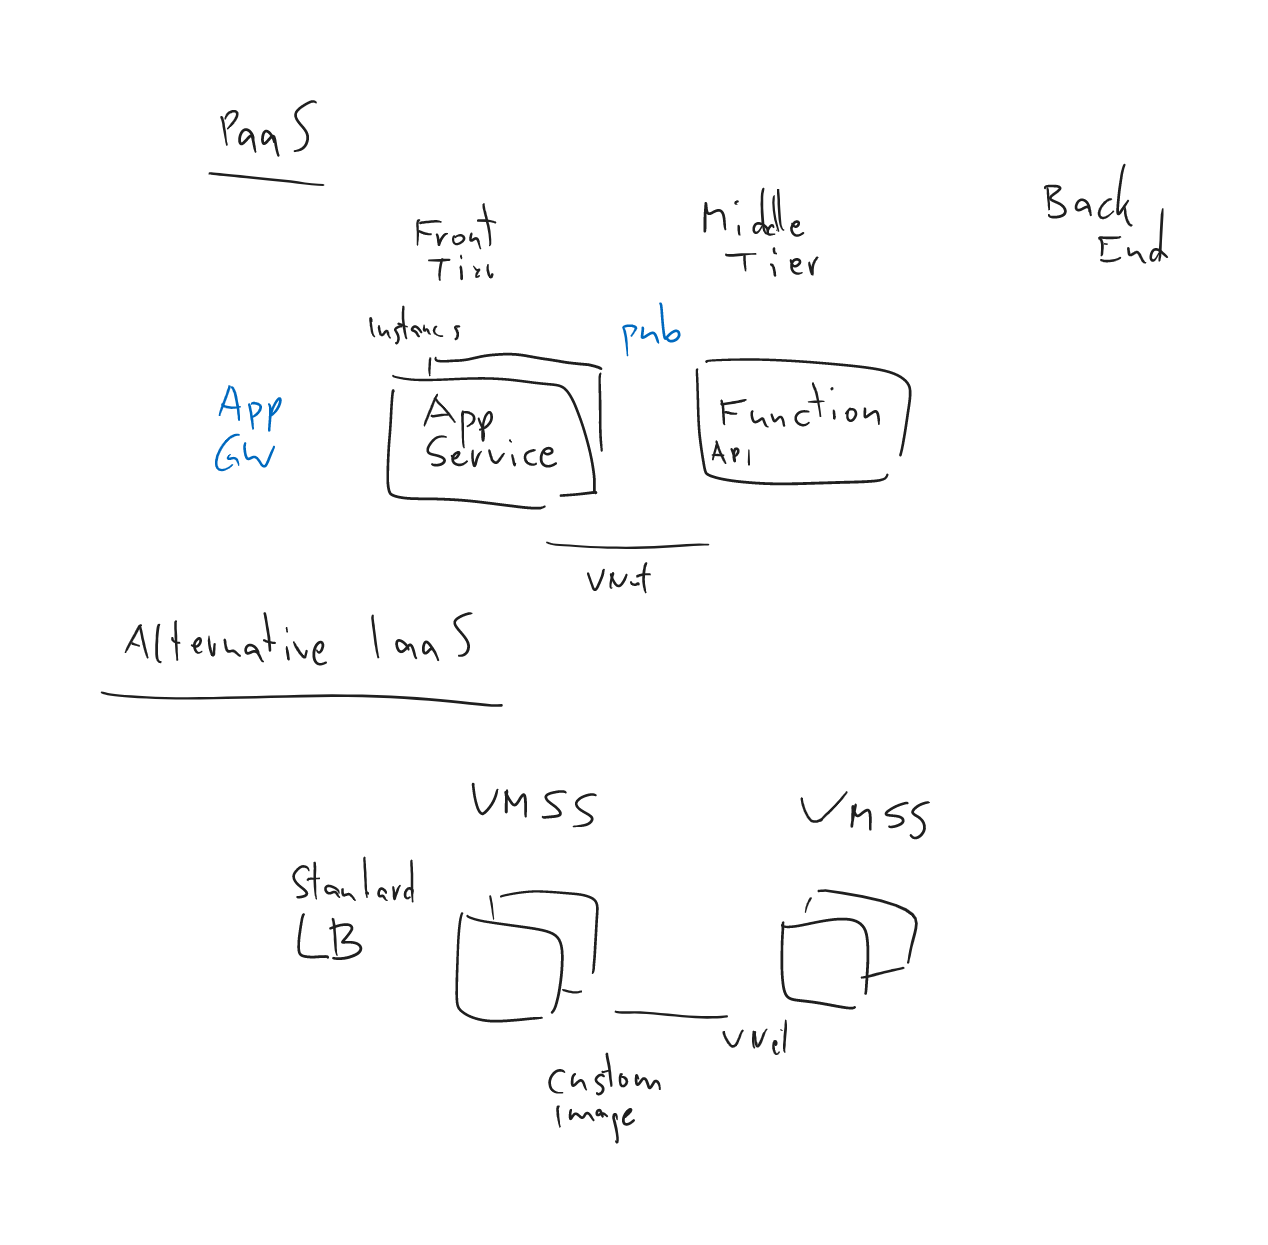 PaaS
Front
Tier
Middle
Tier
Back
End
Instances
pub
App
GW
App
Service
Function
API
VNet
Alternative IaaS
VMSS
VMSS
Standard
LB
VNet
Custom
Image